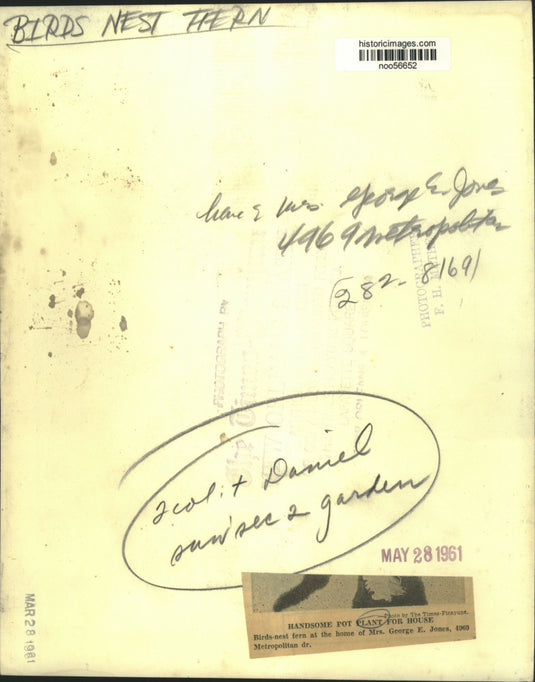 BIRDS NEST FERN
historicimages.com
noo56652
home of Mrs. George E. Jones
4969 Metropolitan
282-8169
PHOTOGRAPH BY
2 col: + Daniel
sun sec 2 garden
MAY 28 1961
MAR 28 1961
—Photo by The Times-Picayune.
HANDSOME POT PLANT FOR HOUSE
Birds-nest fern at the home of Mrs. George E. Jones, 4969
Metropolitan dr.